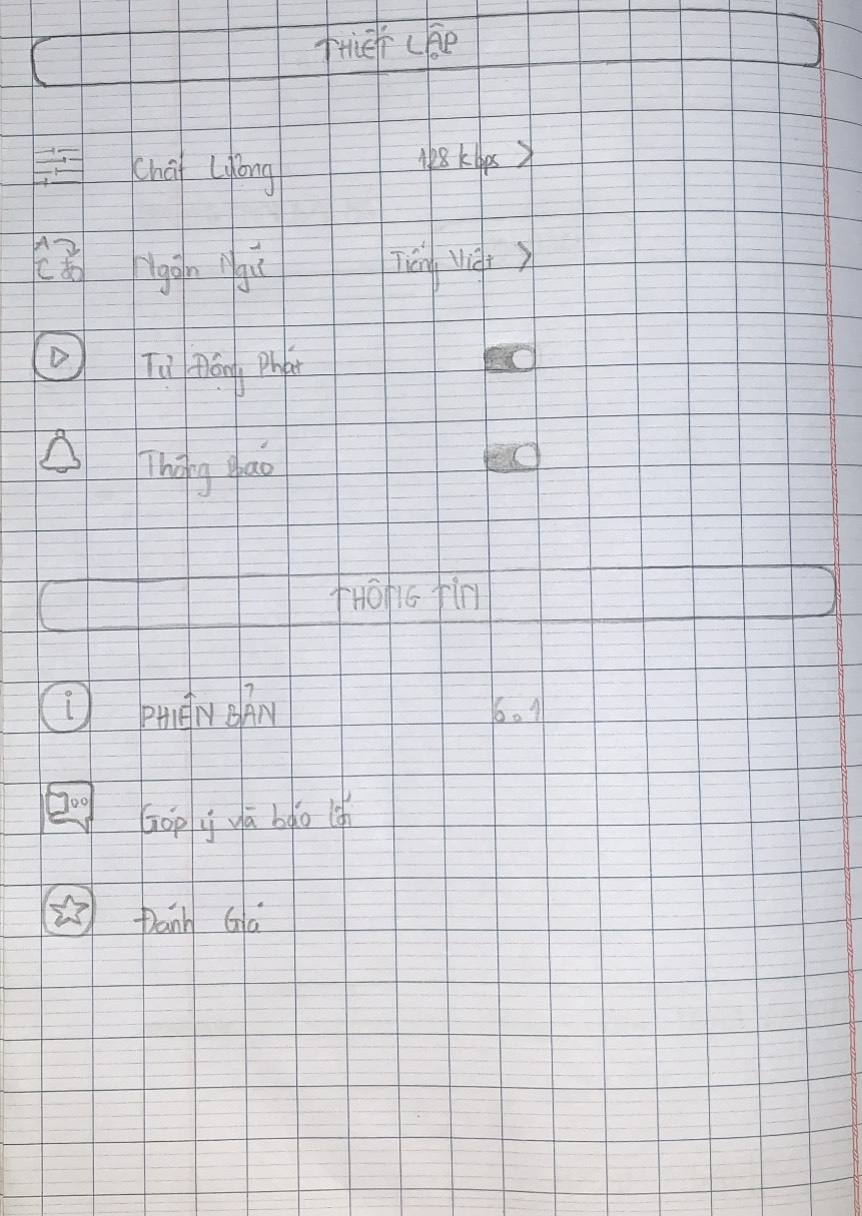 THIẾT LẬP
Chất Lượng 128 kbps >
Ngôn Ngữ Tiếng Việt >
Tự Động Phát
Thông Báo
THÔNG TIN
i PHIÊN BẢN 6.1
Góp ý và báo lỗi
Đánh Giá